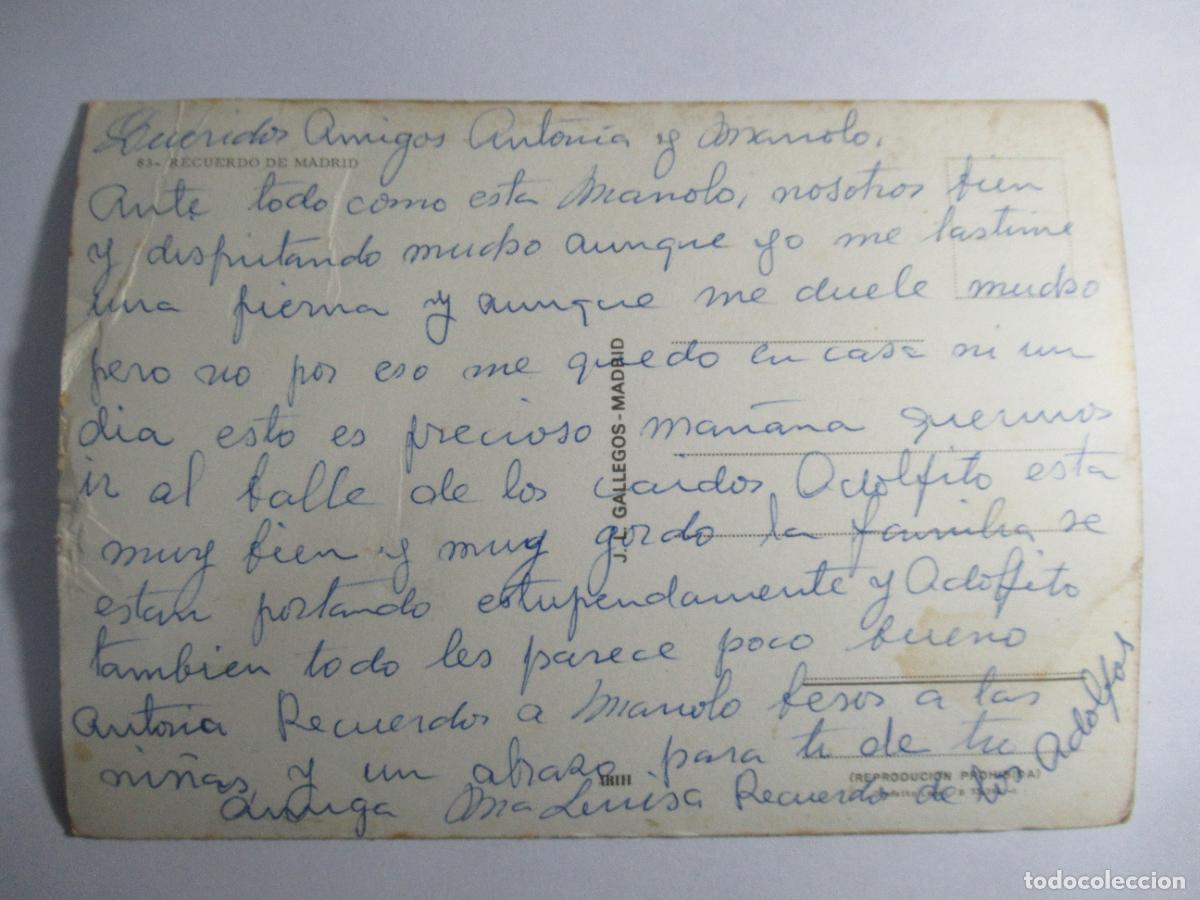 Queridos Amigos Antonia y Manolo.
83- RECUERDO DE MADRID
Ante todo como esta Manolo, nosotros bien
y disfrutando mucho aunque yo me lastime
una pierna y aunque me duele mucho
pero no por eso me quedo en casa ni un
dia esto es precioso mañana queremos
ir al balle de los caidos Adolfito esta
muy bien y muy gordo la familia se
estan portando estupendamente y Adolfito
tambien todo les parece poco bueno
Antonia Recuerdos a Manolo besos a las
niñas y un abrazo para ti de tu
amiga Ma Luisa Recuerdos de los Adolfos
J. L. GALLEGOS - MADRID
(REPRODUCION PROHIBIDA)
todocoleccion